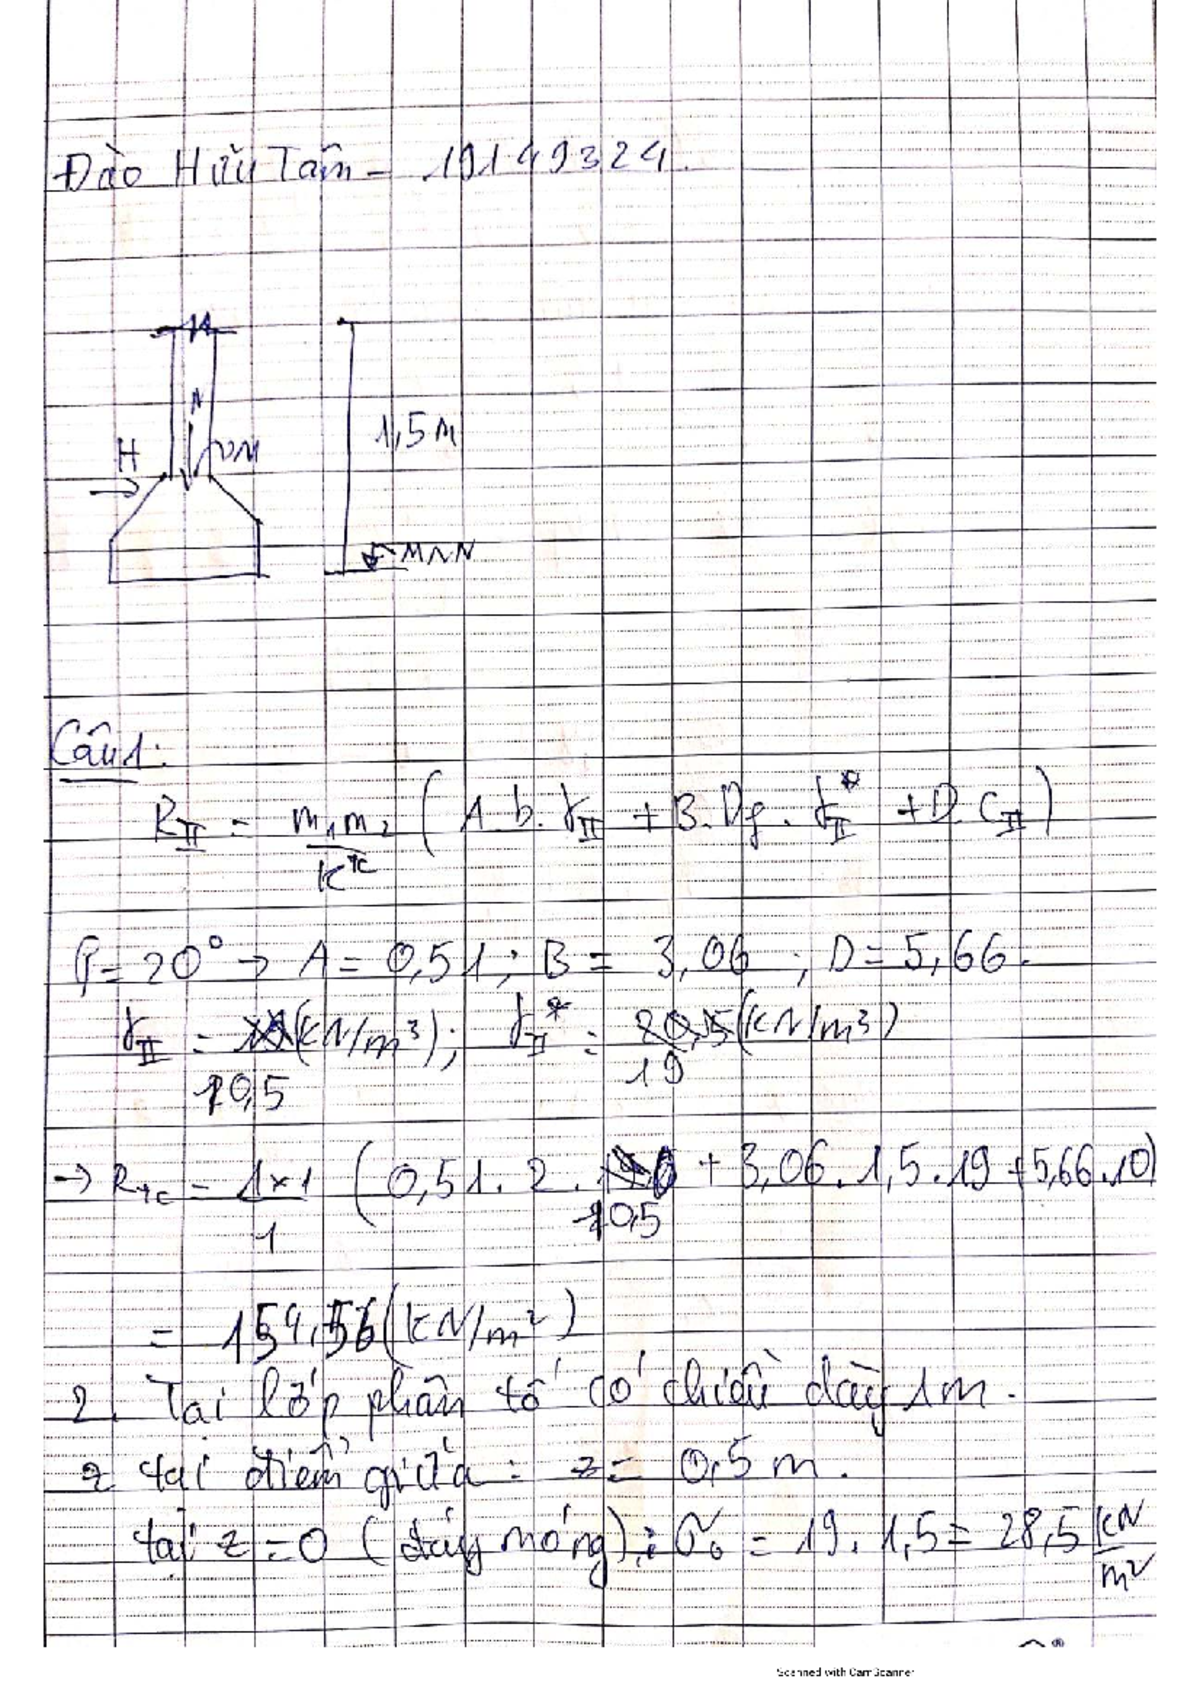 Đào Hữu Tâm - 19149324.
N
H
M
1,5m
MNN
Câu 1:
R_II = m₁m₂/k^tc (A.b.γ_II + B.Df.γ*_II + D.C_II)
φ = 20° → A = 0,51; B = 3,06; D = 5,66.
γ_II = (kN/m³); γ*_II = (kN/m³)
10,5 19
→ R_tc = 1x1/1 (0,51. 2. 10,5 + 3,06. 1,5. 19 + 5,66. 10)
= 154,56 (kN/m²)
2. Tại lớp phân tố có chiều dày 1m.
tại điểm giữa: z = 0,5 m.
tại z = 0 (đáy móng): σ₀ = 19. 1,5 = 28,5 kN/m²
Scanned with CamScanner